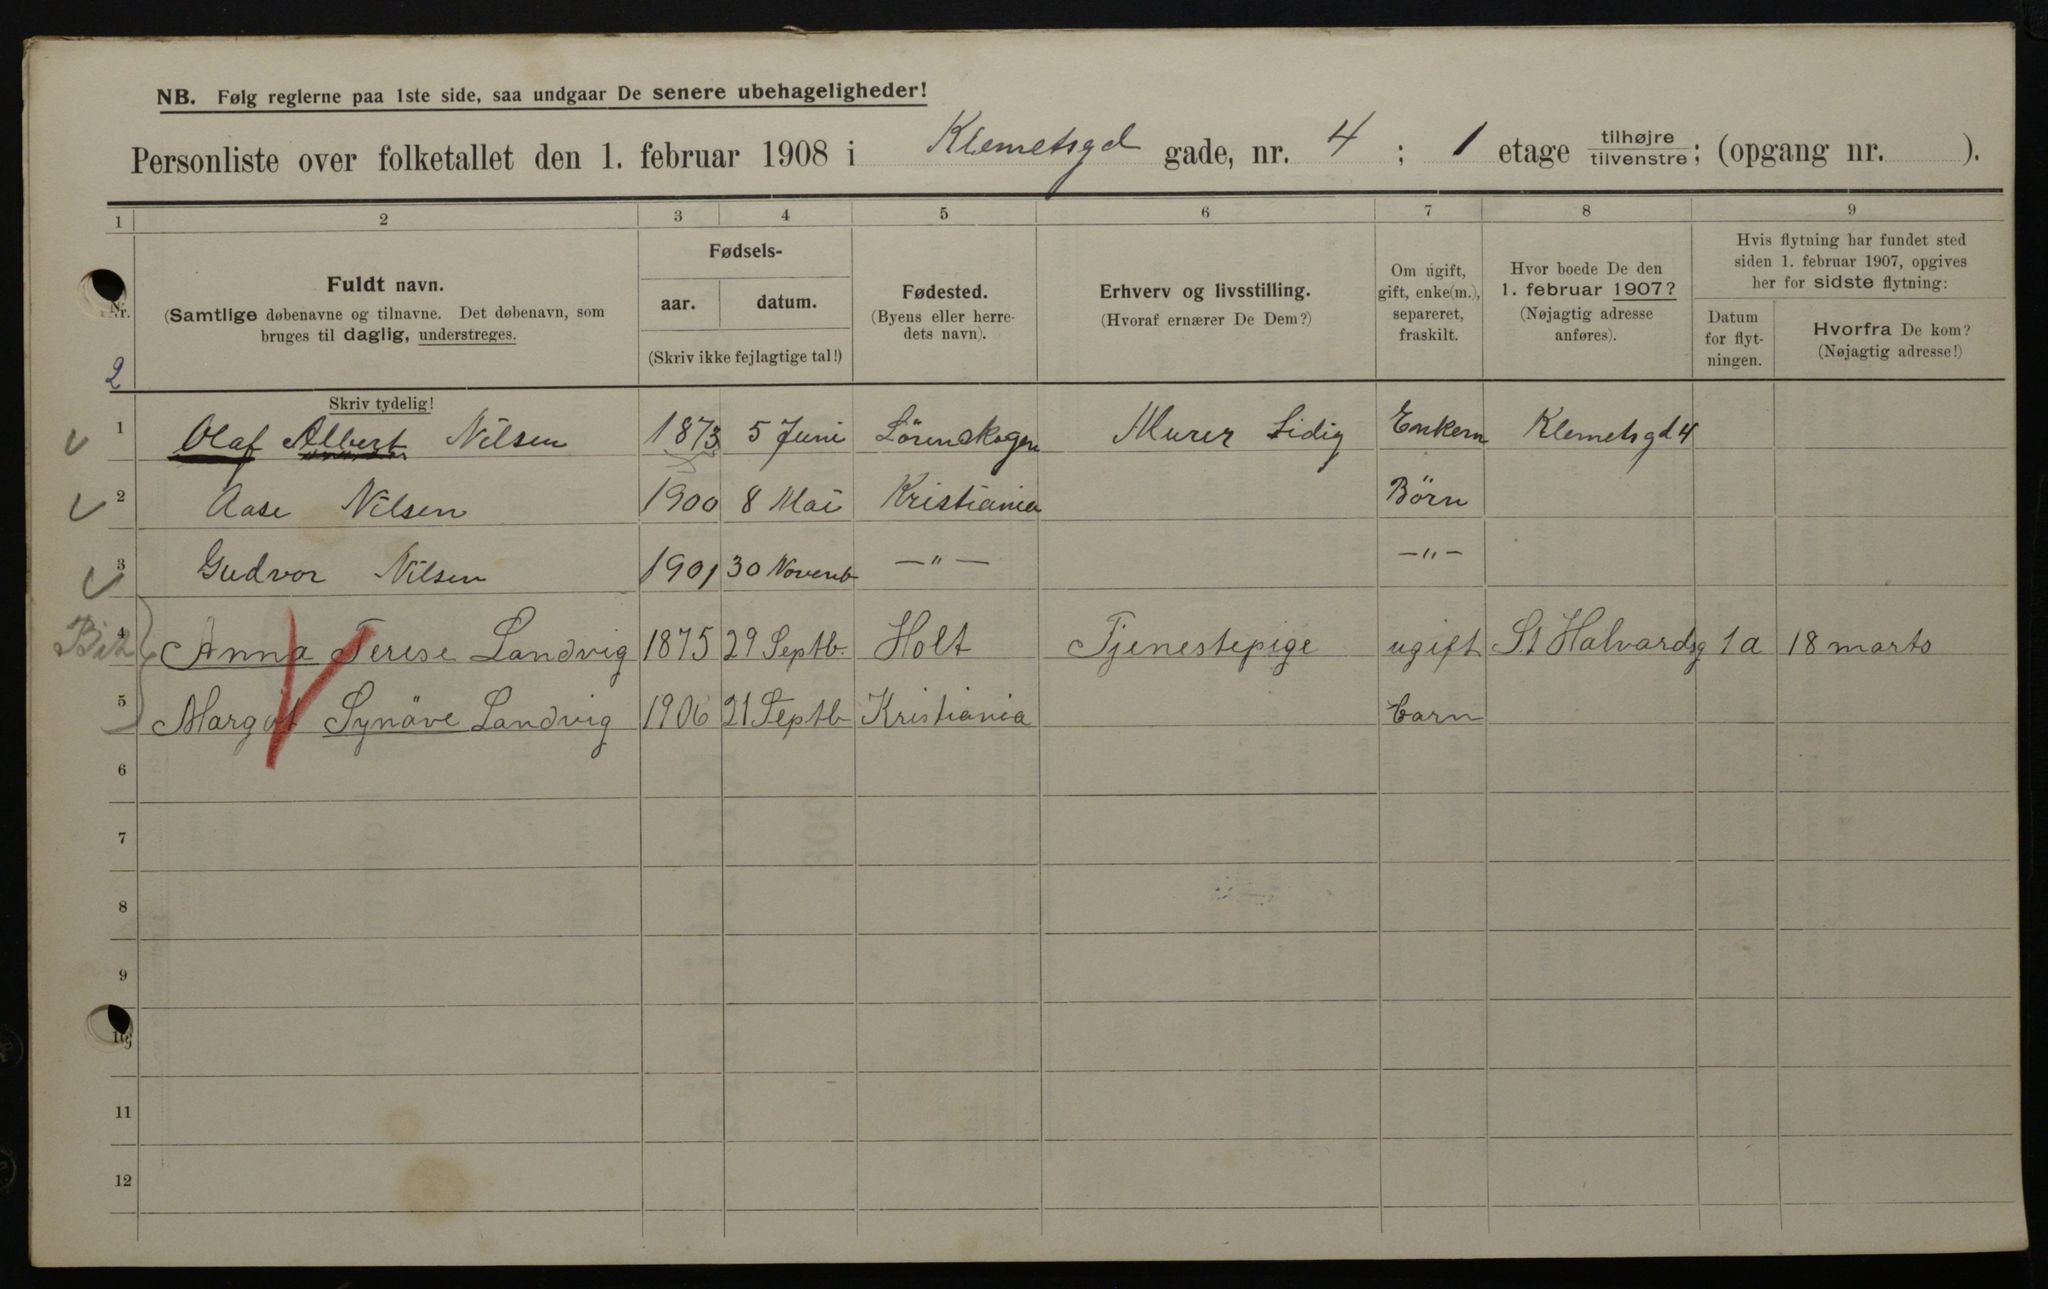 NB. Følg reglerne paa 1ste side, saa undgaar De senere ubehageligheder!
Personliste over folketallet den 1. februar 1908 i Klemetsgd gade, nr. 4 ; 1 etage tilhøjre tilvenstre; (opgang nr. ).
1 2 3 4 5 6 7 8 9
Nr.
2
Fuldt navn.
(Samtlige døbenavne og tilnavne. Det døbenavn, som
bruges til daglig, understreges.
Skriv tydelig!
Fødsels-
aar. datum.
(Skriv ikke fejlagtige tal!)
Fødested.
(Byens eller herre-
dets navn).
Erhverv og livsstilling.
(Hvoraf ernærer De Dem?)
Om ugift,
gift, enke(m.),
separeret,
fraskilt.
Hvor boede De den
1. februar 1907?
(Nøjagtig adresse
anføres).
Hvis flytning har fundet sted
siden 1. februar 1907, opgives
her for sidste flytning:
Datum
for flyt-
ningen.
Hvorfra De kom?
(Nøjagtig adresse!)
1 Olaf Albert Nilsen 1873 5 Juni Lörenskogen Murer Ledig Enkem Klemetsgd 4
2 Aase Nilsen 1900 8 Mai Kristiania Börn
3 Gudvor Nilsen 1901 30 Novemb —"— —"—
4 Anna Terese Landvig 1875 29 Septb. Holt Tjenestepige ugift St Halvardsg 1a 18 marts
5 Margot Synöve Landvig 1906 21 Septb Kristiania barn
6
7
8
9
10
11
12